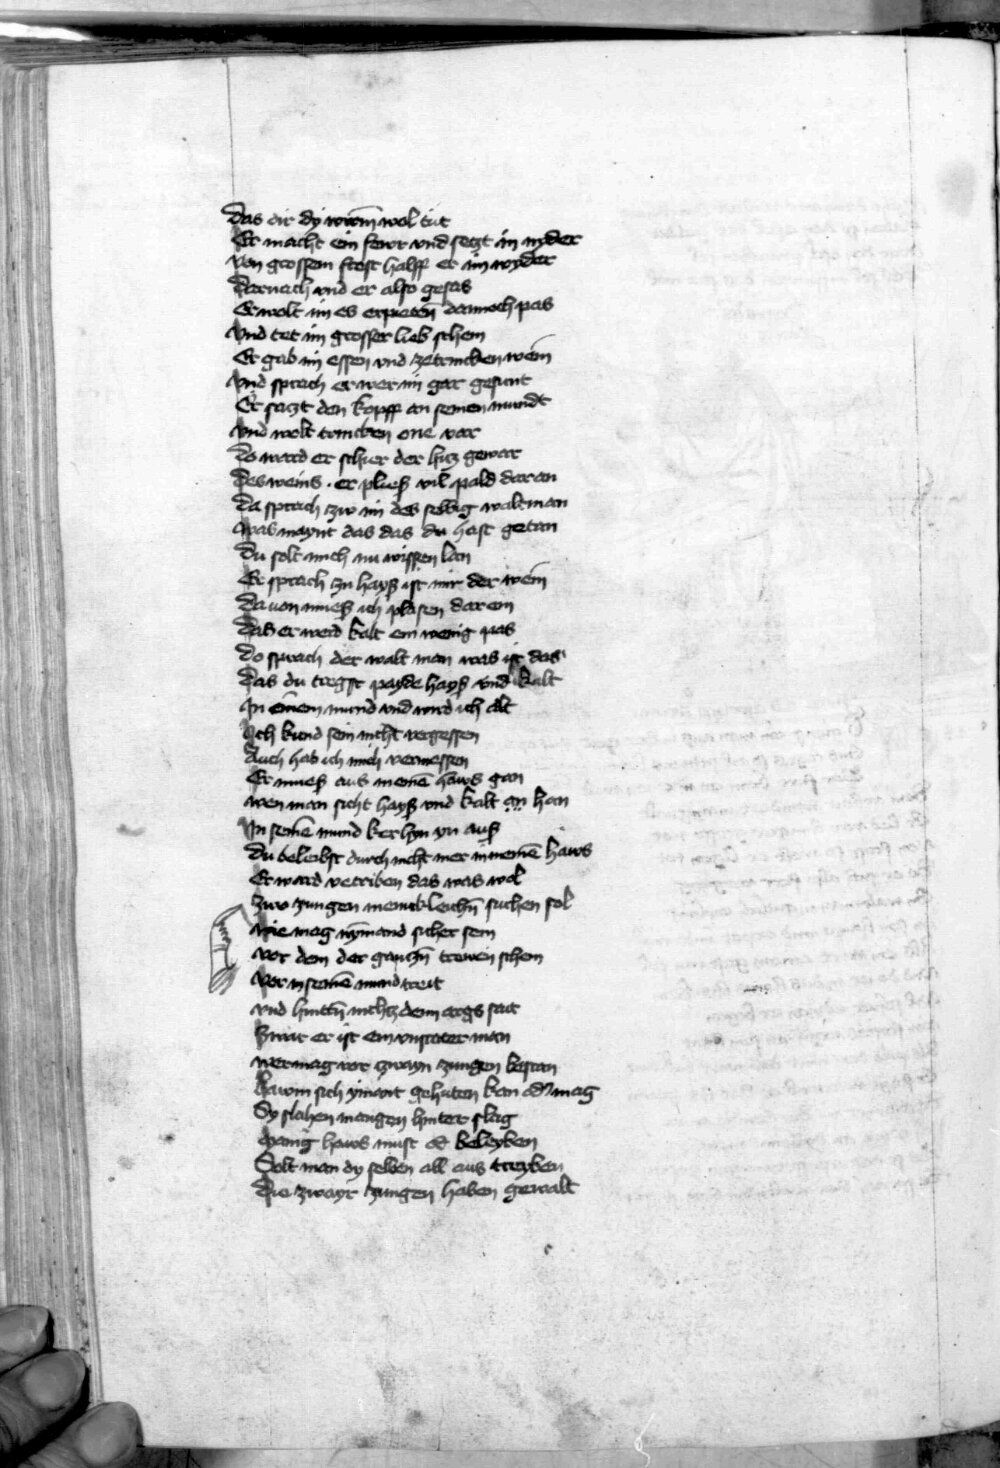 Das dir dy wirm wol tut
Er macht ein fewr vnd setzt in nyder
von grossem frost halff er im wyder
Darnach vnd er also gesas
Er wolt im es erpieten dannoch pas
Vnd tet im grosser lieb schein
Er gab im essen vnd ze trincken wein
Vnd sprach er wer im gar gesunt
Er satzt den kopff an seinen mundt
Vnd wolt trincken one var
Do ward er schier der hitz gewar
Des weins . er plies vil pald daran
Da sprach zw im des selbig waltman
Was maynt das das du hast getan
Du solt mich nu wissen lan
Er sprach zu hayß ist mir der wein
Da von mues ich plasen dar ein
Das er werd kalt ein wenig pas
Do sprach der walt man was ist das
Das du tregst payde hayß vnd kalt
In einem mund vnd wird ich alt
Ich kund sein nicht vergessen
Auch hab ich mich vermessen
Er mues aus meine haws gan
wen man sicht hayß vnd kalt an han
In seine mund ker hyn vn auß
Du beleibst durch nicht mer in meine haws
Er ward vetriben das was wol
Zwo zungen menickleichn suchen sol
Wie mag nymand sicher sein
vor dem der gantzn trewen schein
Vor in seine mund treit
vnd hinttn nichtz denn args sait
Zwar er ist ein vnstater man
wer mag vor zwayn zungen bestan
kawm sich ymant gehuten kan od mag
Sy slahen mangen hinter slag
Manig haws must od beleyben
Solt man dy selben all aus treyben
Die zwayr zungen haben gewalt